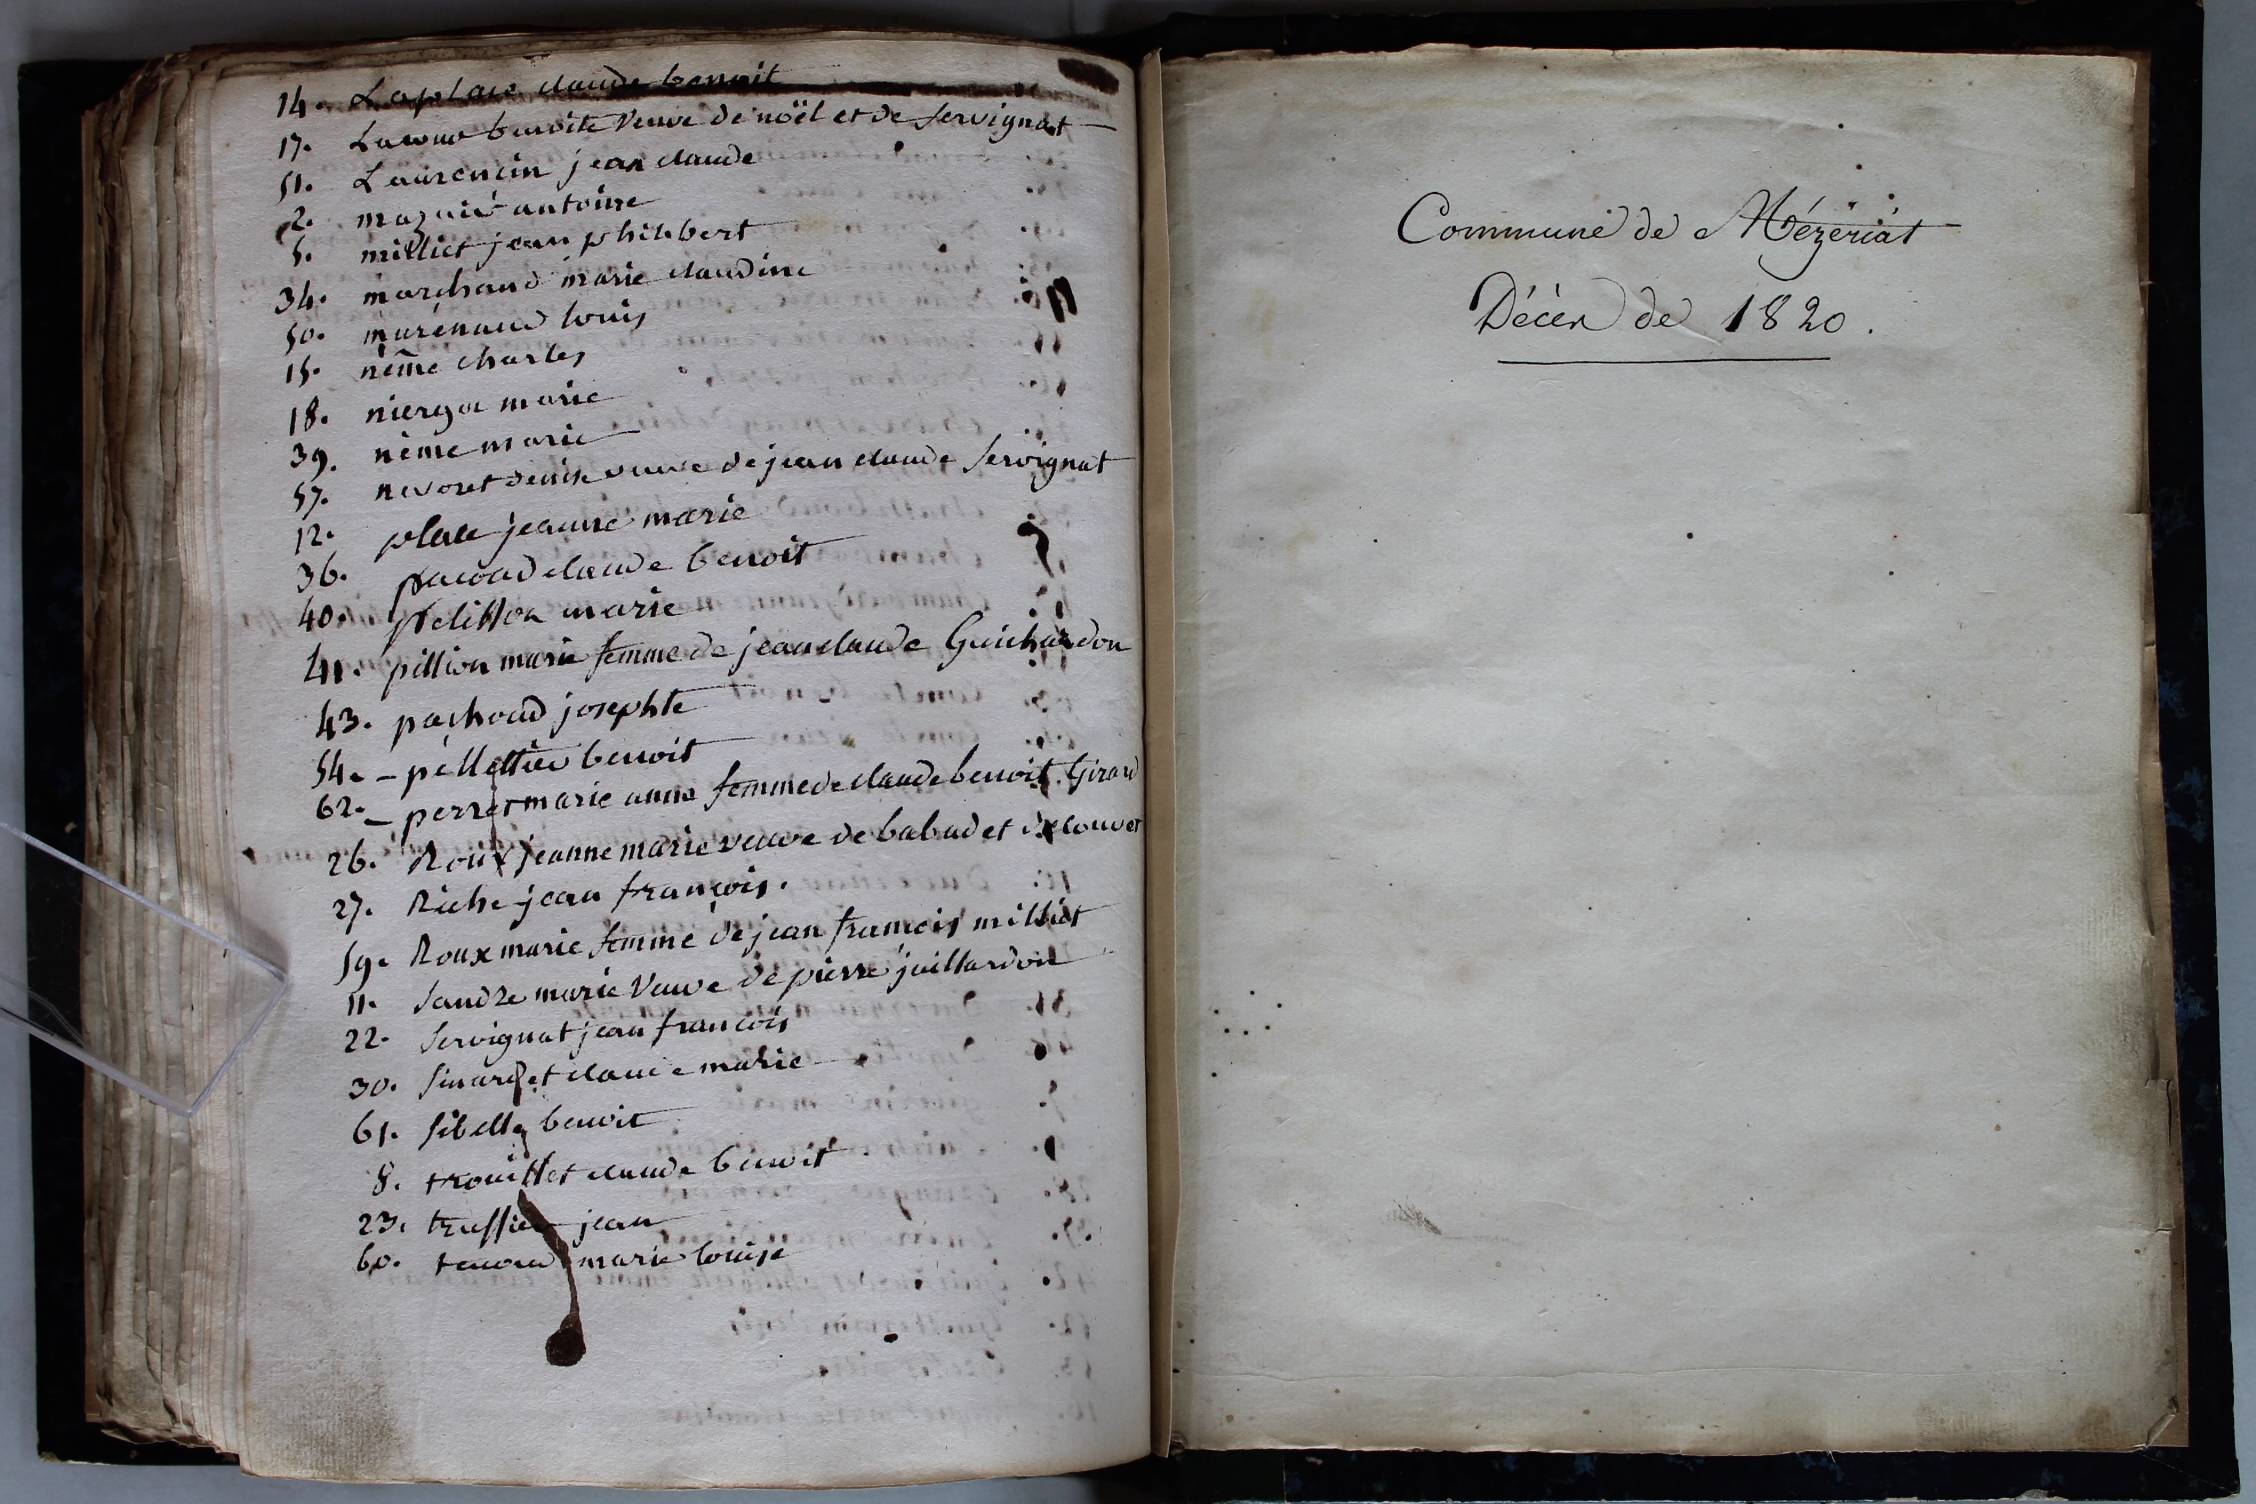 14. Laplace claude benoit
17. benoite veuve de noël et de Servignat
51. Laurencin jean claude
2. antoine
5. millict jean philibert
34. marchand marie claudine
50. marénaud louis
15. nême charles
18. niergon marie
39. nême marie
57. nevoret denise veuve de jean claude Servignat
12. place jeanne marie
36. pacoud claude benoit
40. pelisson marie
41. pillion marie femme de jean claude Guichardon
43. pachoud josephte
54. - benoit
62. - perret marie anne femme de claude benoit Girard
26. Roux jeanne marie veuve de babad et de couvet
27. Riche jean françois.
59. Roux marie femme de jean françois millict
11. Sandre marie veuve de pierre juillardon
22. Servignat jean françois
30. Sinardet claude marie
61. Sibelle benoit
8. trouillet claude benoit
23. jean
60. marie louise
Commune de Mézériat
Décès de 1820.